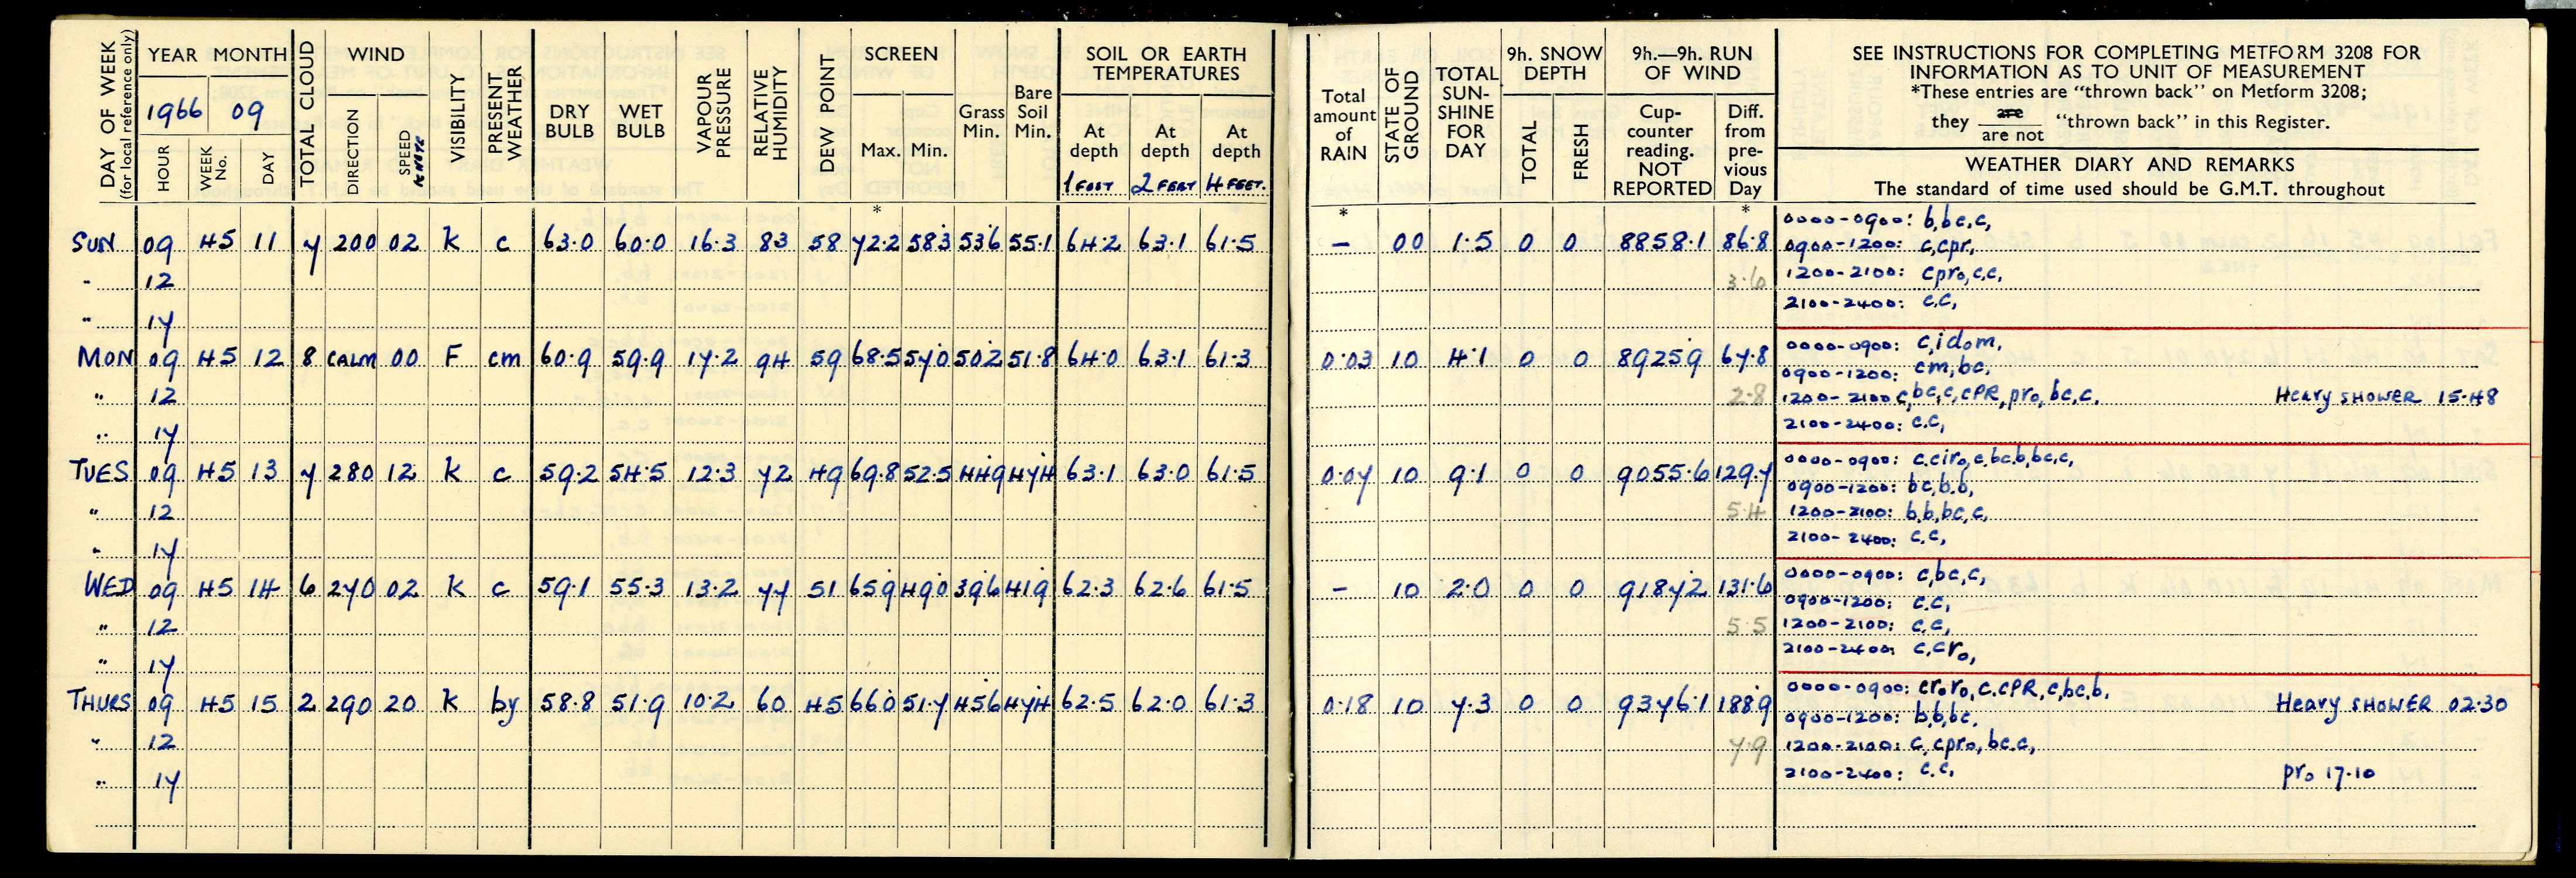 DAY OF WEEK
(for local reference only)
YEAR MONTH
1966 09
HOUR
WEEK No.
DAY
TOTAL CLOUD
WIND
DIRECTION
SPEED
KNOTS
VISIBILITY
PRESENT WEATHER
DRY BULB
WET BULB
VAPOUR PRESSURE
RELATIVE HUMIDITY
DEW POINT
SCREEN
Max. Min.
Grass Min.
Bare Soil Min.
SOIL OR EARTH TEMPERATURES
At depth 1 FOOT
At depth 2 FEET
At depth 4 FEET.
Total amount of RAIN
STATE OF GROUND
TOTAL SUN-SHINE FOR DAY
9h. SNOW DEPTH
TOTAL
FRESH
9h.—9h. RUN OF WIND
Cup-counter reading. NOT REPORTED
Diff. from pre-vious Day
SEE INSTRUCTIONS FOR COMPLETING METFORM 3208 FOR
INFORMATION AS TO UNIT OF MEASUREMENT
*These entries are "thrown back" on Metform 3208;
they are / are not "thrown back" in this Register.
WEATHER DIARY AND REMARKS
The standard of time used should be G.M.T. throughout
* * *
SUN 09 45 11 7 200 02 K c 63.0 60.0 16.3 83 58 72.2 58.3 53.6 55.1 64.2 63.1 61.5 – 00 1.5 0 0 8858.1 86.8
0000-0900: b,bc,c,
0900-1200: c,cpr,
" 12 3.6 1200-2100: cpro,c.c,
2100-2400: c.c,
" 17
MON 09 45 12 8 CALM 00 F cm 60.9 59.9 17.2 94 59 68.5 57.0 50.2 51.8 64.0 63.1 61.3 0.03 10 4.1 0 0 8925.9 67.8
0000-0900: c,idom,
0900-1200: cm,bc,
" 12 2.8 1200-2100 c,bc,c,cPR,pro,bc,c, Heavy SHOWER 15.48
2100-2400: c.c,
" 17
TUES 09 45 13 7 280 12 K c 59.2 54.5 12.3 72 49 69.8 52.5 44.9 47.4 63.1 63.0 61.5 0.07 10 9.1 0 0 9055.6 129.7
0000-0900: c.ciro,c,bc.b,bc,c,
0900-1200: bc,b.b,
" 12 5.4 1200-2100: b,b,bc,c,
2100-2400: c.c,
" 17
WED 09 45 14 6 270 02 K c 59.1 55.3 13.2 77 51 65.9 49.0 39.6 41.9 62.3 62.6 61.5 – 10 2.0 0 0 9187.2 131.6
0000-0900: c,bc,c,
0900-1200: c.c,
" 12 5.5 1200-2100: c.c,
2100-2400: c,cro,
" 17
THURS 09 45 15 2 290 20 K by 58.8 51.9 10.2 60 45 66.0 51.7 45.6 47.4 62.5 62.0 61.3 0.18 10 7.3 0 0 9376.1 188.9
0000-0900: cro ro,c.cPR,c,bc,b, Heavy SHOWER 02.30
0900-1200: b,b,bc,
" 12 7.9 1200-2100: c,cpro,bc.c,
2100-2400: c.c, pro 17.10
" 17